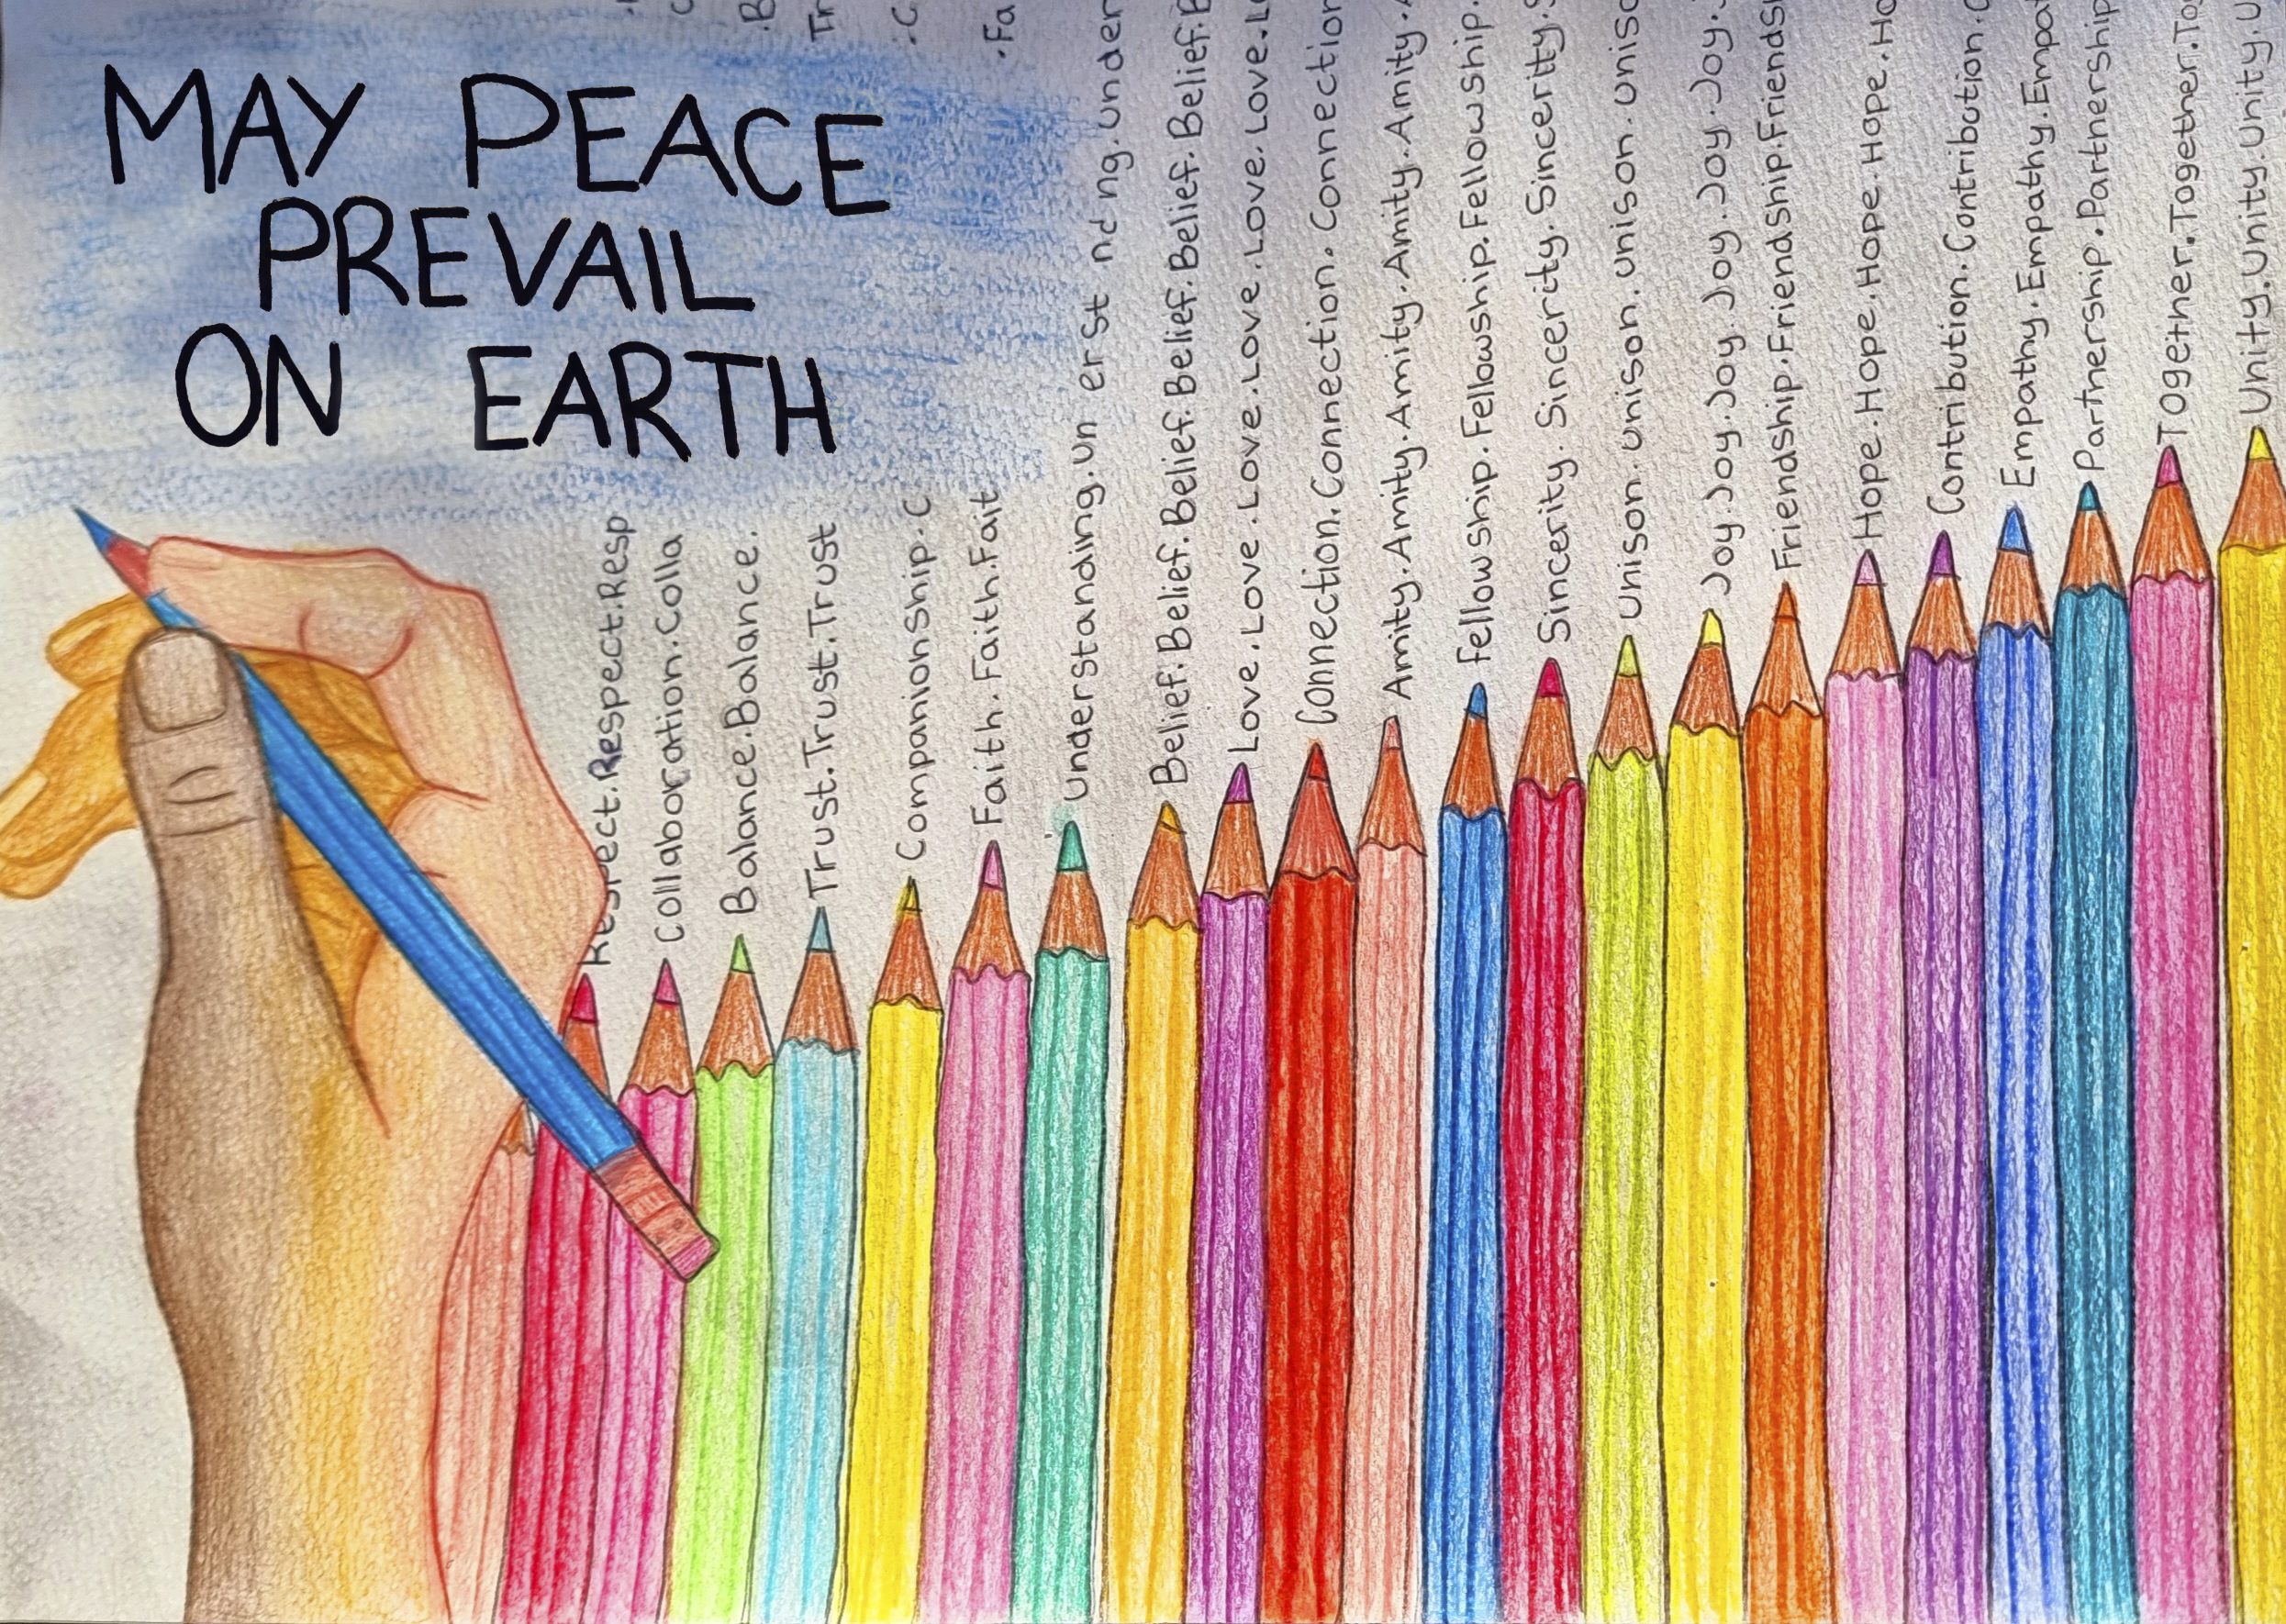 MAY PEACE
PREVAIL
ON EARTH
Respect.Respect.Resp
Collaboration.Colla C
Balance.Balance. .B
Trust.Trust.Trust Tr
Companionship.C .C
Faith.Faith.Fait .Fa
Understanding.Un erst nd ng.Under
Belief.Belief.Belief.Belief.Belief.Belief.B
Love.Love.Love.Love.Love.Love.Love.Lo
Connection.Connection.Connection
Amity.Amity.Amity.Amity.Amity.A
Fellowship.Fellowship.Fellowship.
Sincerity.Sincerity.Sincerity.S
Unison.Unison.Unison.Uniso
Joy.Joy.Joy.Joy.Joy.Joy.
Friendship.Friendship.Friends
Hope.Hope.Hope.Hope.Ho
Contribution.Contribution.C
Empathy.Empathy.Empat
Partnership.Partnership
Together.Together.Tog
Unity.Unity.Unity.U